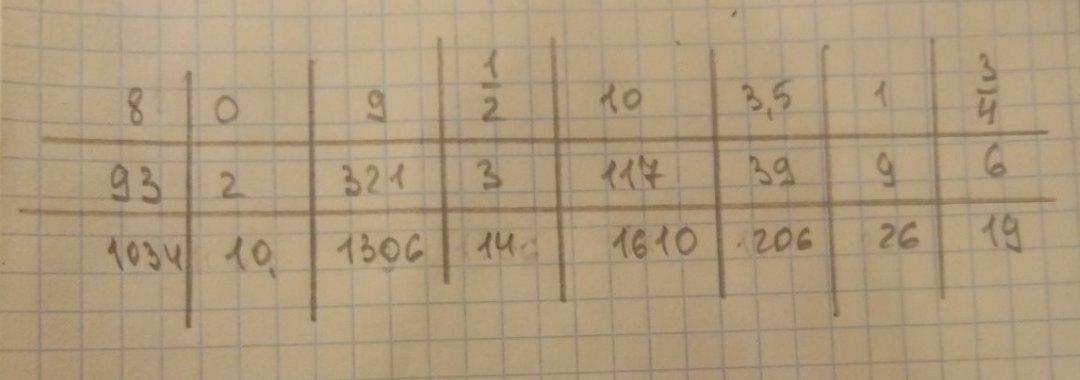 8 0 9 1/2 10 3,5 1 3/4
93 2 321 3 117 39 9 6
1034 10 1306 14 1610 206 26 19